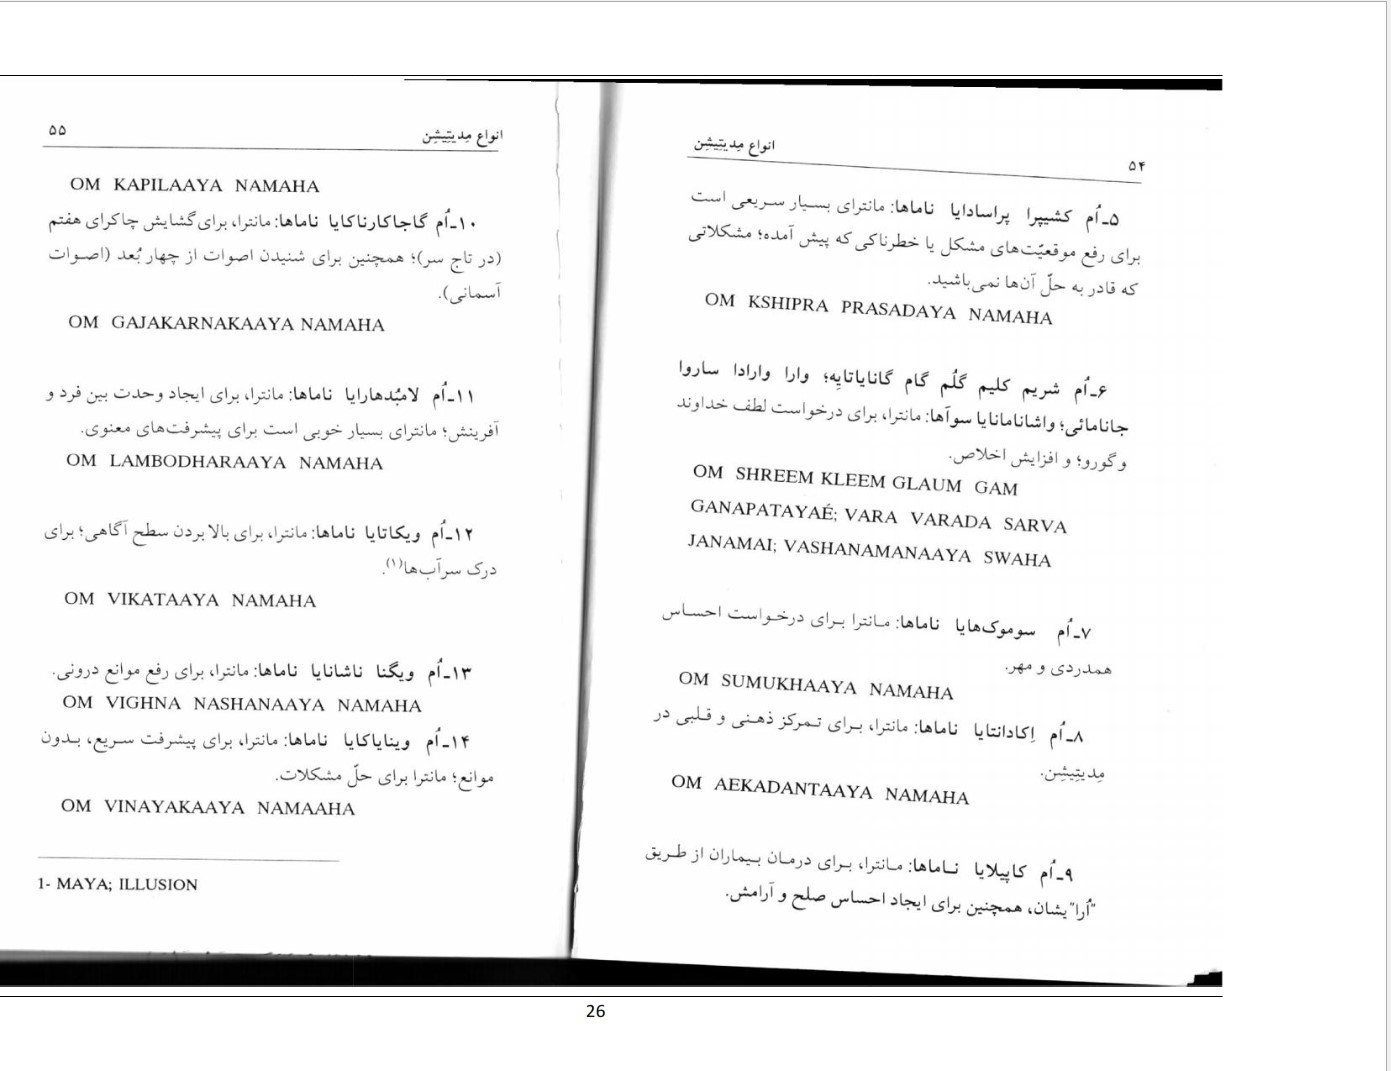 انواع مِدیتِیشِن
۵۴
۵ـ اُم کشیپرا پراسادایا ناماها: مانترای بسیار سریعی است
برای رفع موقعیّت‌های مشکل یا خطرناکی که پیش آمده؛ مشکلاتی
که قادر به حلّ آن‌ها نمی‌باشید.
OM KSHIPRA PRASADAYA NAMAHA
۶ـ اُم شریم کلیم گلُم گام گاناپاتایه؛ وارا وارادا ساروا
جانامائی؛ واشانامانایا سوآها: مانترا، برای درخواست لطف خداوند
و گورو؛ و افزایش اخلاص.
OM SHREEM KLEEM GLAUM GAM
GANAPATAYAÉ; VARA VARADA SARVA
JANAMAI; VASHANAMANAAYA SWAHA
۷ـ اُم سوموک‌هایا ناماها: مانترا برای درخواست احساس
همدردی و مهر.
OM SUMUKHAAYA NAMAHA
۸ـ اُم اِکادانتایا ناماها: مانترا، برای تمرکز ذهنی و قلبی در
مِدیتِیشِن.
OM AEKADANTAAYA NAMAHA
۹ـ اُم کاپیلایا ناماها: مانترا، برای درمان بیماران از طریق
"اُرا"یشان، همچنین برای ایجاد احساس صلح و آرامش.
انواع مِدیتِیشِن
۵۵
OM KAPILAAYA NAMAHA
۱۰ـ اُم گاجاکارناکایا ناماها: مانترا، برای گشایش چاکرای هفتم
(در تاج سر)؛ همچنین برای شنیدن اصوات از چهار بُعد (اصوات
آسمانی).
OM GAJAKARNAKAAYA NAMAHA
۱۱ـ اُم لامبُدهارایا ناماها: مانترا، برای ایجاد وحدت بین فرد و
آفرینش؛ مانترای بسیار خوبی است برای پیشرفت‌های معنوی.
OM LAMBODHARAAYA NAMAHA
۱۲ـ اُم ویکاتایا ناماها: مانترا، برای بالا بردن سطح آگاهی؛ برای
درک سرآب‌ها(۱).
OM VIKATAAYA NAMAHA
۱۳ـ اُم ویگنا ناشانایا ناماها: مانترا، برای رفع موانع درونی.
OM VIGHNA NASHANAAYA NAMAHA
۱۴ـ اُم وینایاکایا ناماها: مانترا، برای پیشرفت سریع، بدون
موانع؛ مانترا برای حلّ مشکلات.
OM VINAYAKAAYA NAMAAHA
1- MAYA; ILLUSION
26